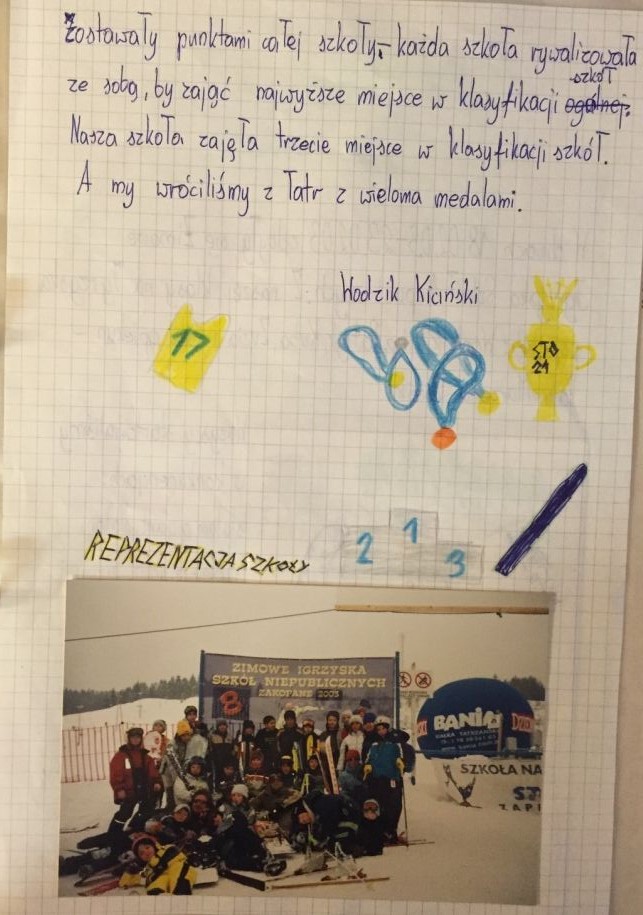 zostawały punktami całej szkoły - każda szkoła rywalizowała
szkół
ze sobą, by zająć najwyższe miejsce w klasyfikacji ogólnej.
Nasza szkoła zajęła trzecie miejsce w klasyfikacji szkół.
A my wróciliśmy z Tatr z wieloma medalami.
Wodzik Kiciński
17
STO
21
1
2
3
REPREZENTACJA SZKOŁY
ZIMOWE IGRZYSKA
SZKÓŁ NIEPUBLICZNYCH
ZAKOPANE 2003
8
BANIA
SZKOŁA NA